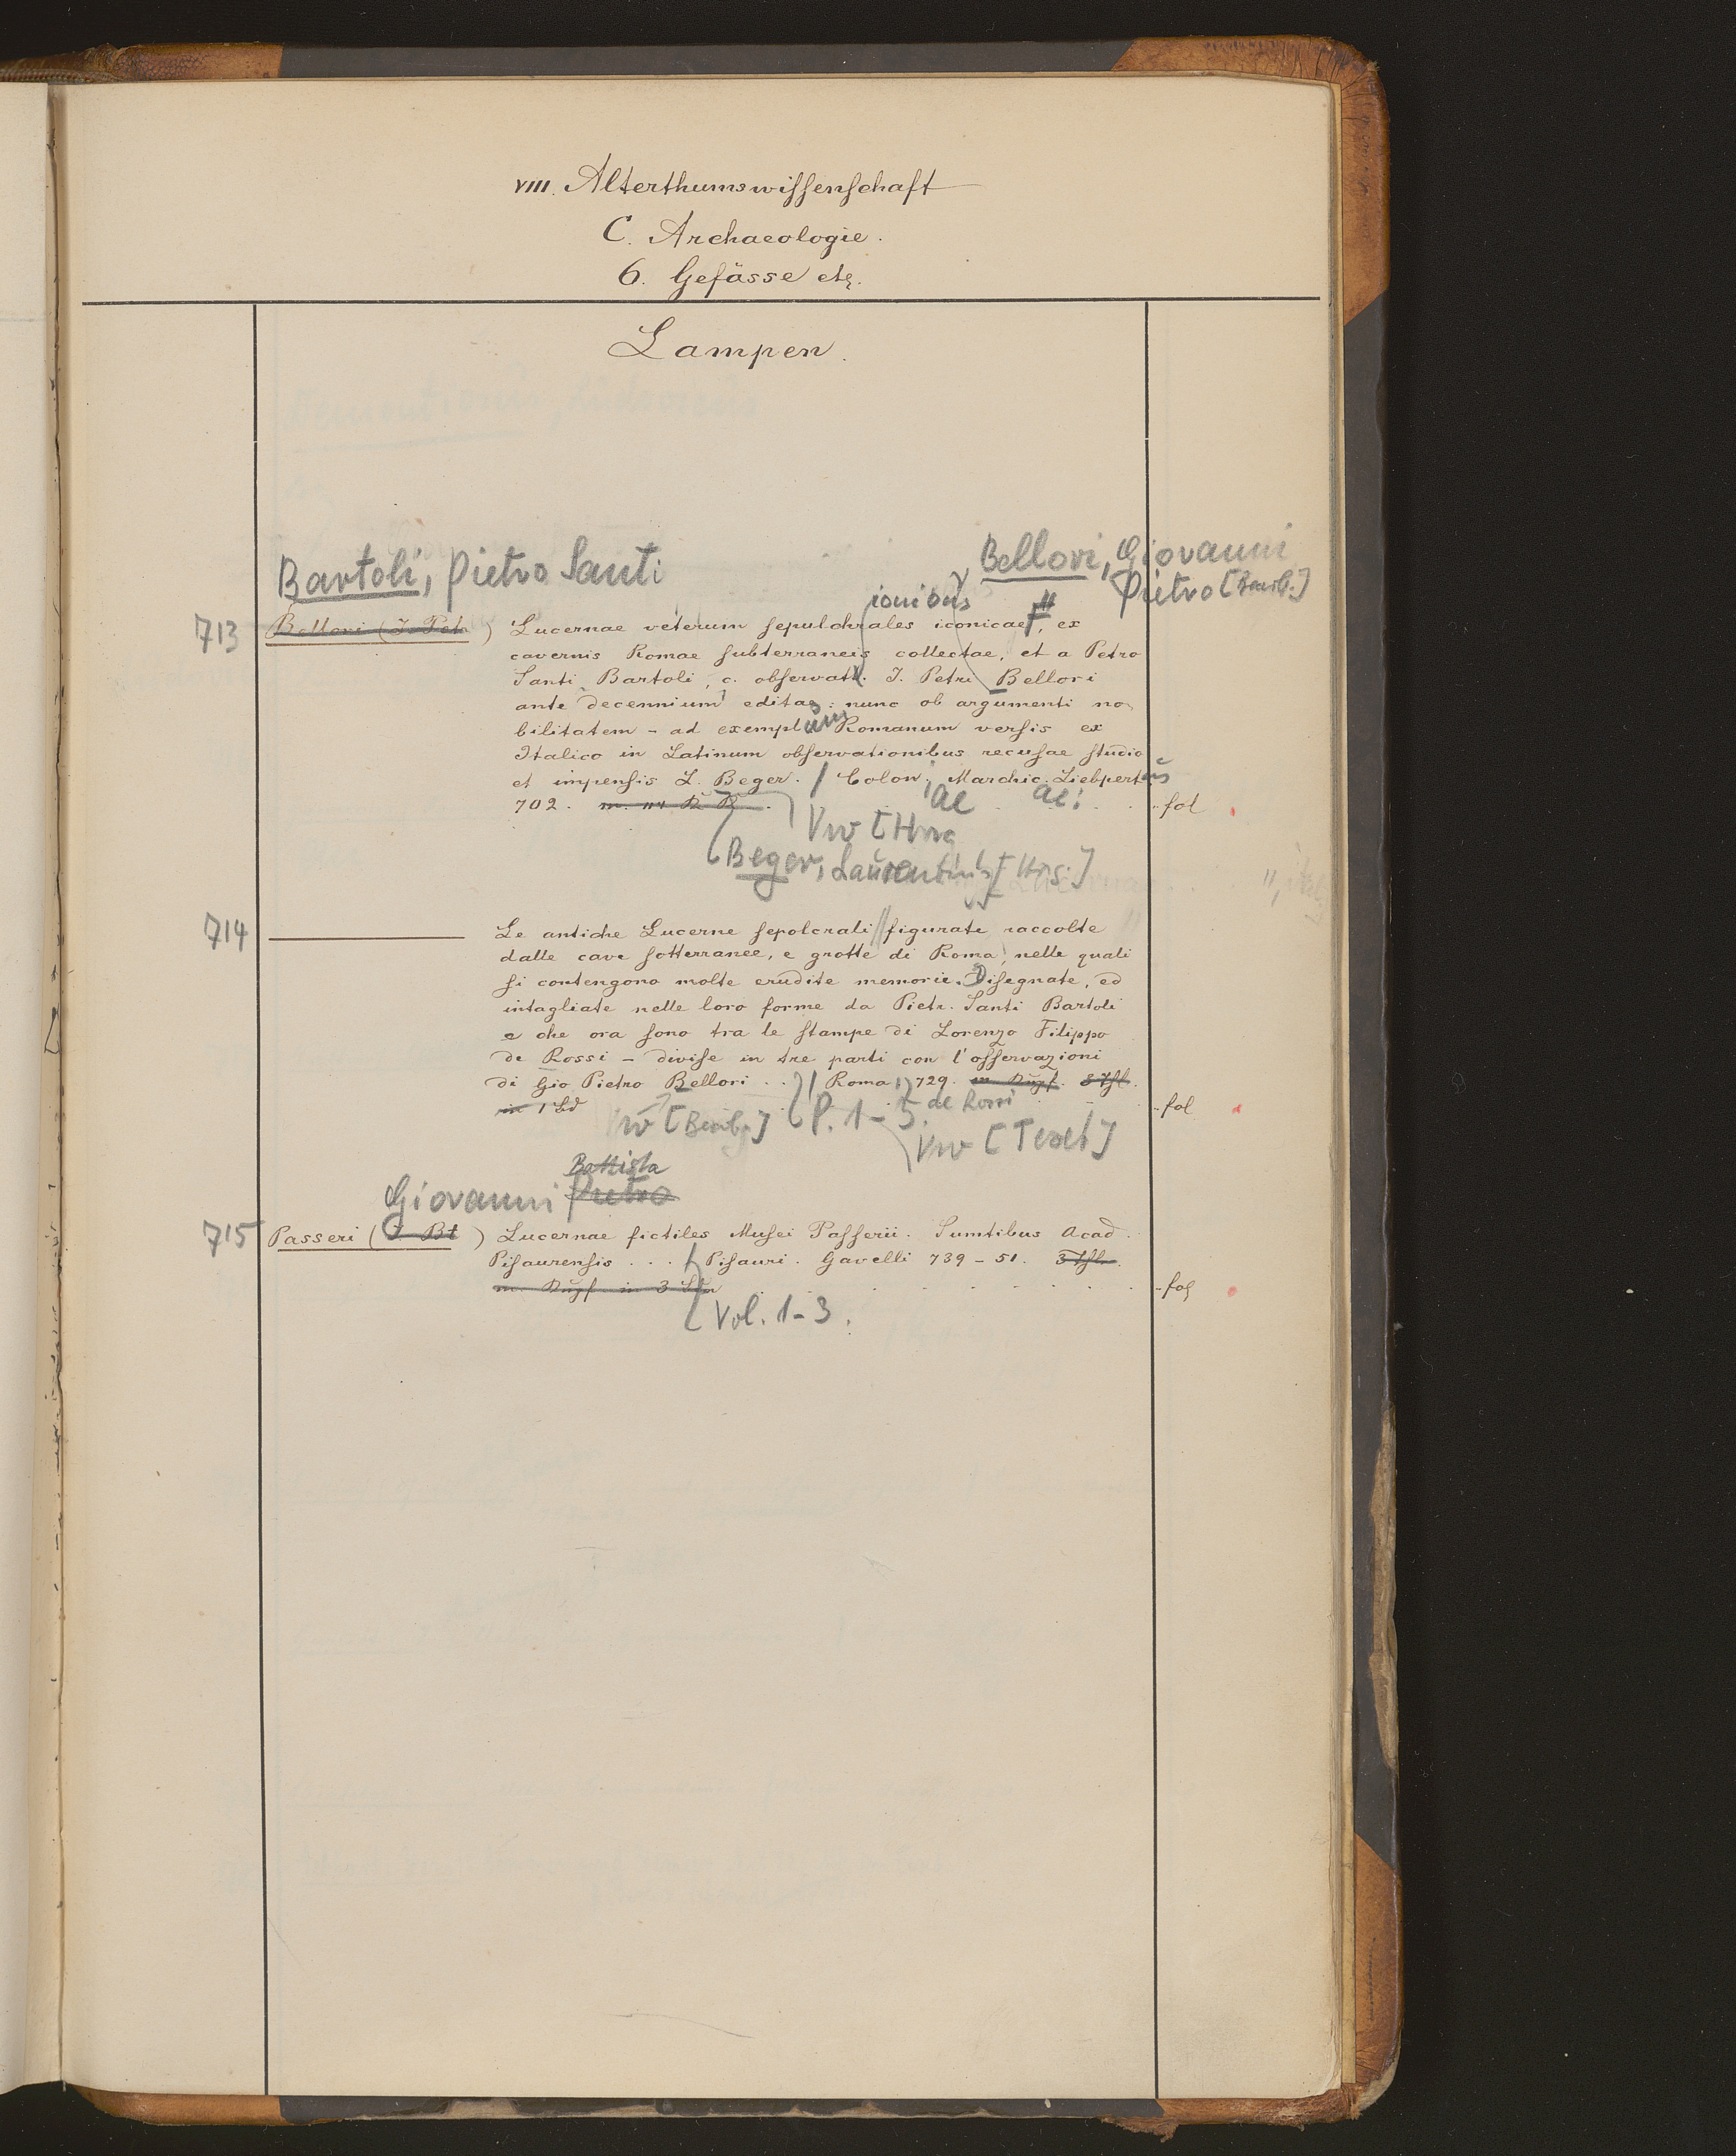 VIII. Alterthumswissenschaft
C. Archaeologie.
6. Gefässe etc.
Lampen.
Bartoli, Pietro Santi
Bellori, Giovanni
Pietro [Bearb.]
ionibus
713 Bellori (J. Petr.) Lucernae veterum sepulchrales iconicae, ex
cavernis Romae subterraneis collectae, et a Petro
Santi Bartoli, c. observatt. J. Petri Bellori
ante decennium editae: nunc ob argumenti no
bilitatem - ad exemplum Romanum versis ex
Italico in Latinum observationibus recusae studio
et impensis L. Beger. / Colon. Marchic. Liebpertus
702. m. K. fol
ae ae:
Vw [Hrsg
Beger, Laurentius [Hrsg.]
714 Le antiche Lucerne sepolcrali figurate raccolte
dalle cave sotterranee, e grotte di Roma, nelle quali
si contengono molte erudite memorie. Disegnate, ed
intagliate nelle loro forme da Pietr. Santi Bartoli
e che ora sono tra le stampe di Lorenzo Filippo
de Rossi - divise in tre parti con l'osservazioni
di Gio Pietro Bellori . . / Roma, 729. m. Kupf. 3 Thl.
in 1 Bd fol
de Rossi
Vw [Bearb.] P. 1-3.
Vw [Text]
Battista
Giovanni Pietro
715 Passeri (J. Bt) Lucernae fictiles Musei Passerii. Sumtibus Acad.
Pisaurensis . . . / Pisauri. Gavelli 739-51. 3 Thl.
m. Kupf. in 3 Bdn fol
Vol. 1-3.